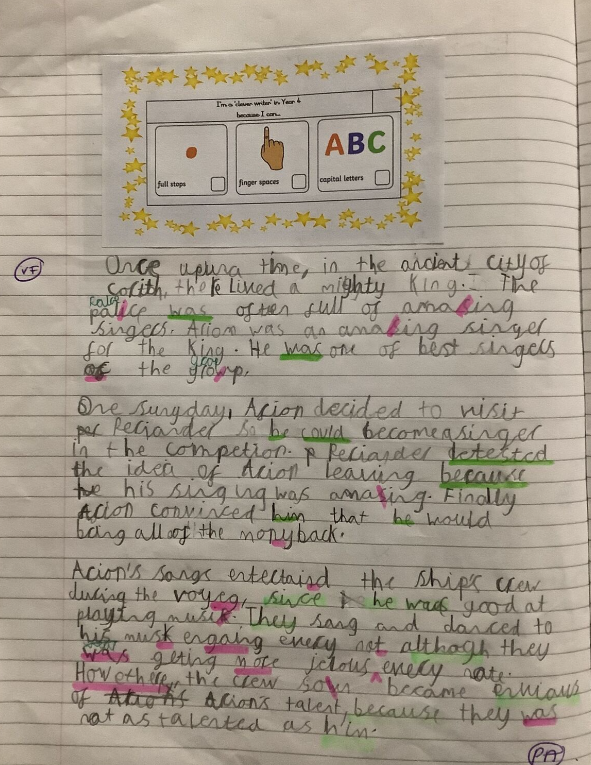 I'm a 'clever writer' in Year 4
because I can...
ABC
full stops
finger spaces
capital letters
VF
Once upuna time, in the ancient city of
Corith, there lived a mighty King. The
palice was often full of amazing
singers. Arion was an amazing singer
for the King. He was one of best singers
of the group.
One sungday, Arion decided to visit
per Periander so he could become a singer
in the competion. Periander detested
the idea of Arion leaving because
his singing was amazing. Finally
Arion convinced him that he would
bring all of the mony back.
Arion's songs entertaisd the ship's crew
during the voyeg, since he was good at
playting music. They sang and danced to
his musk engang every not although they
was geting more jelous every nate.
Howethere, the crew soun became envious
of Arion's talent, because they was
not as talented as him.
PA